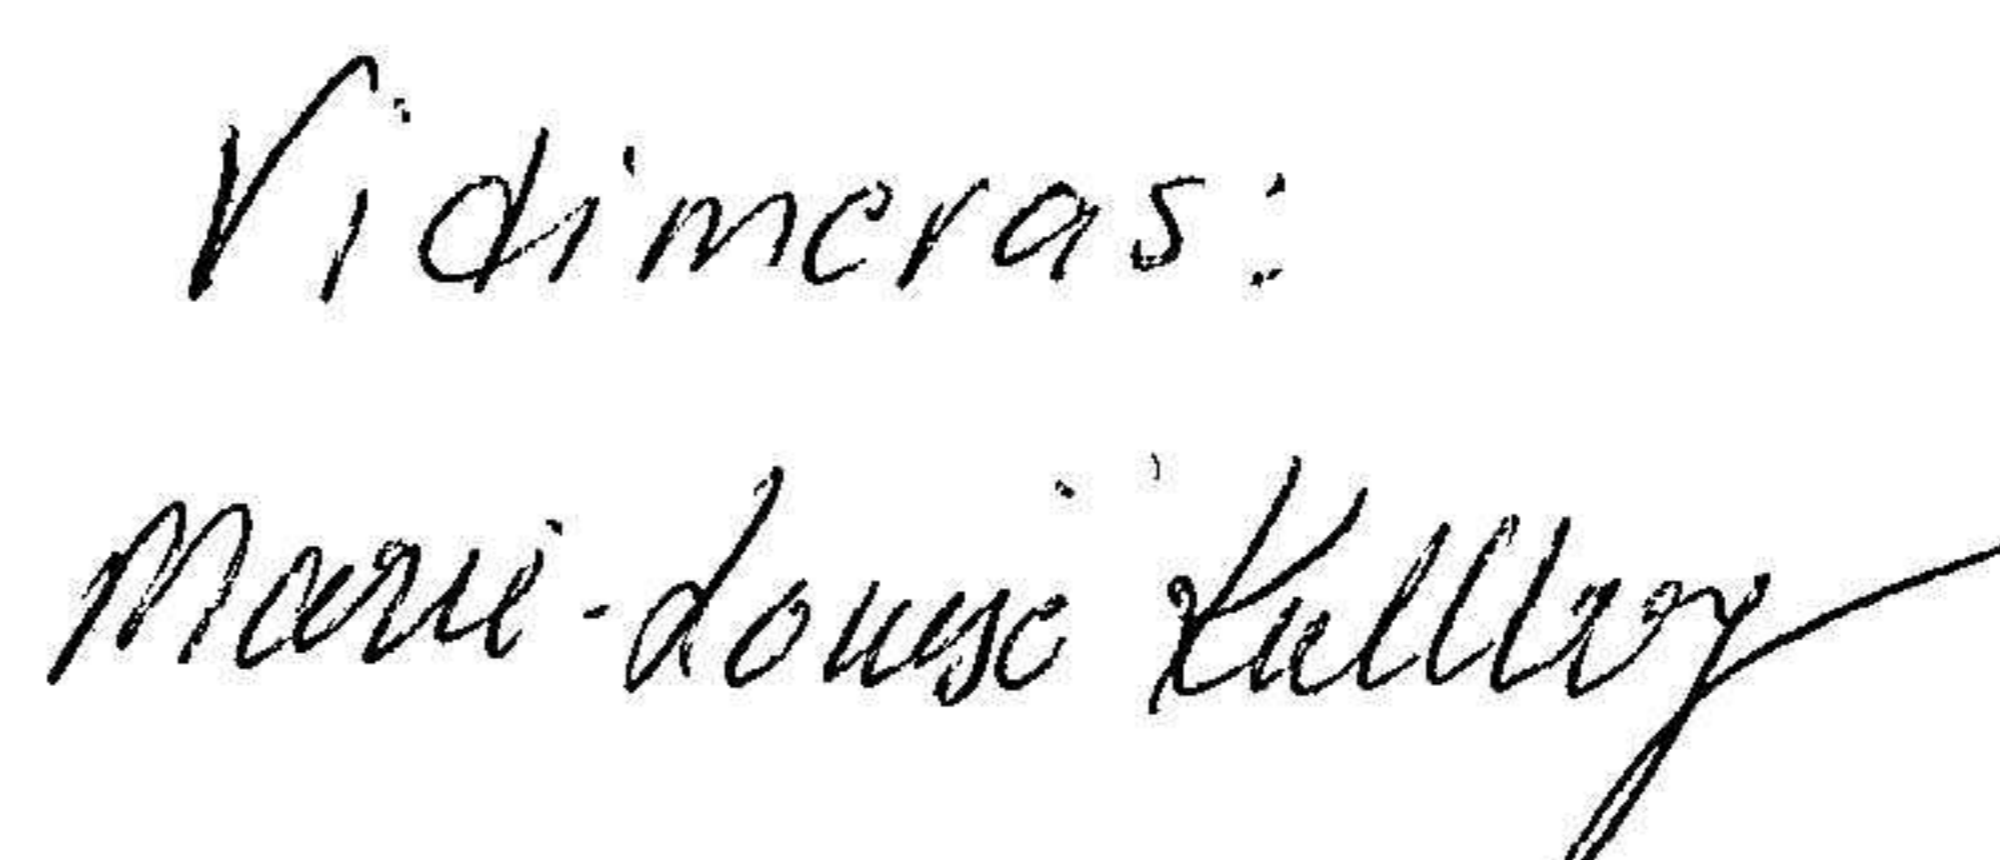 Vidimeras:
Marie-Louise Kullberg